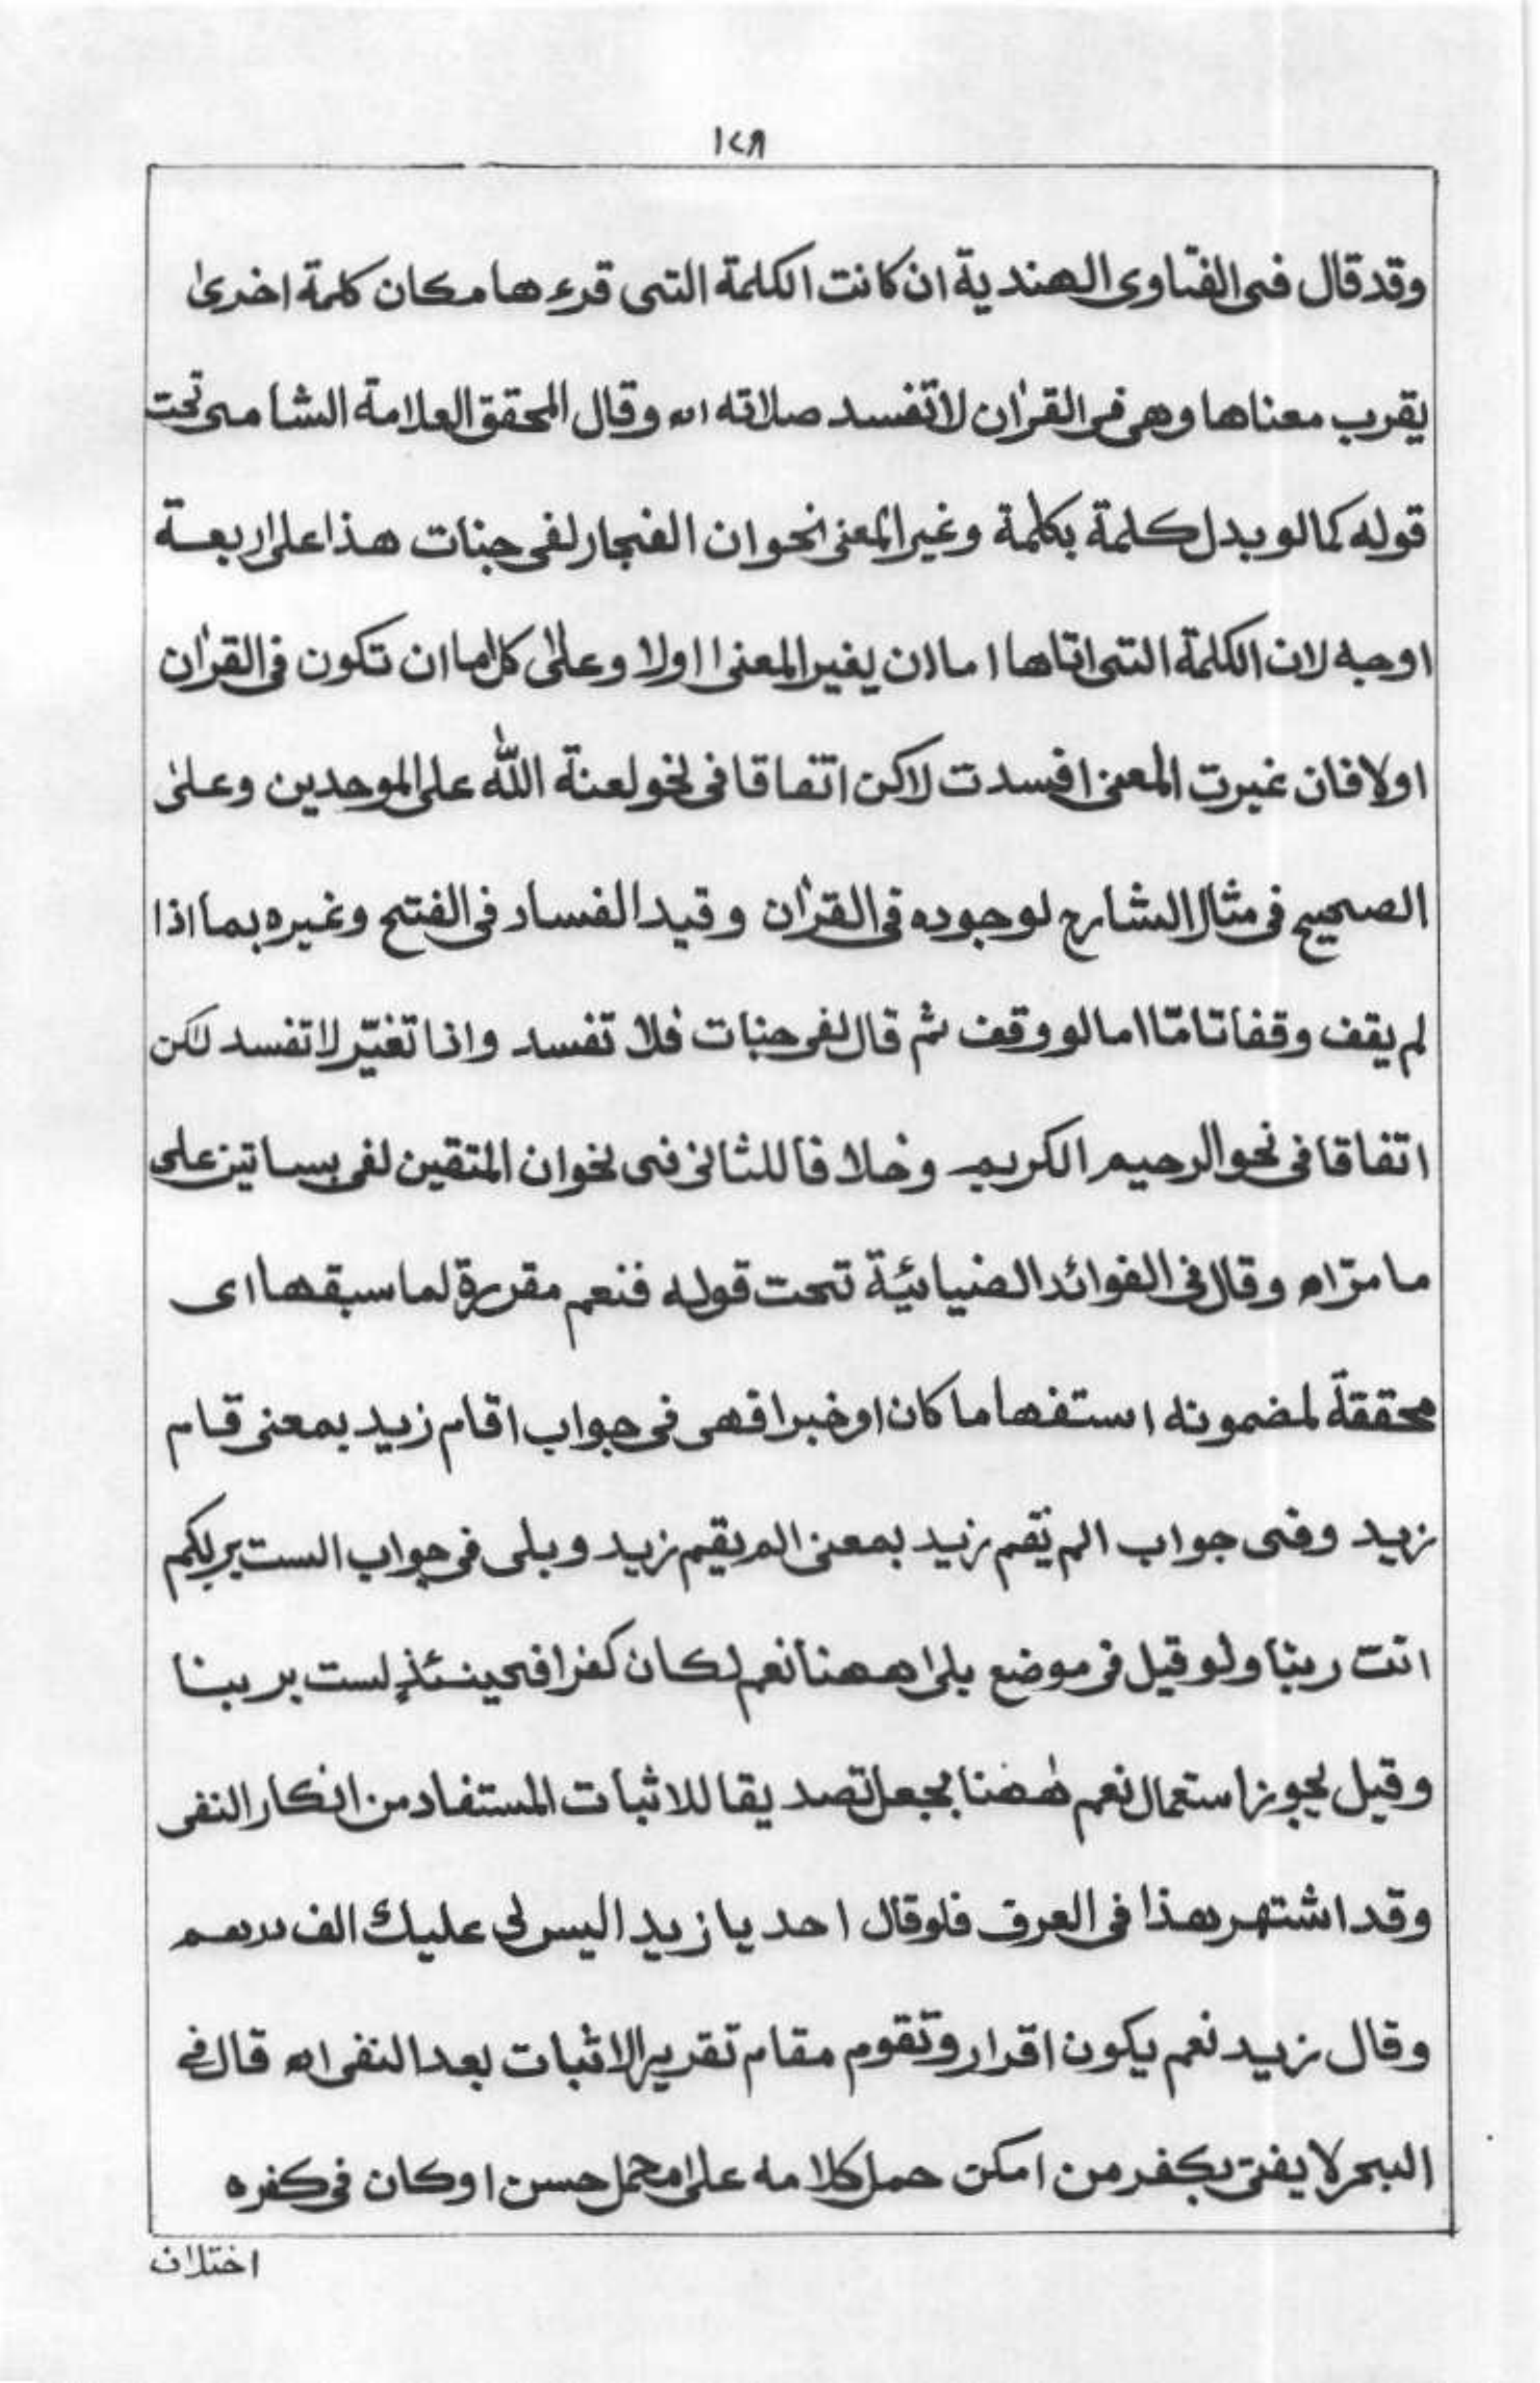 ١٤٨
وقد قال فى الفتاوى الهندية ان كانت الكلمة التى قرءها مكان كلمة اخرىٰ
يقرب معناها وهى فى القرٰان لا تفسد صلاته اه وقال المحقق العلامة الشامى تحت
قوله كما لو بدل كلمة بكلمة وغير المعنى نحو ان الفجار لفى جنات هذا على اربعة
اوجه لان الكلمة التى اتاها اما ان يغير المعنى اولا وعلىٰ كل اما ان تكون فى القرٰان
اولا فان غيرت المعنى افسدت لاكن اتفاقا فى نحو لعنة اللّٰه على الموحدين وعلىٰ
الصحيح فى مثال الشارح لوجوده فى القرٰان وقيد الفساد فى الفتح وغيره بما اذا
لم يقف وقفا تامّا اما لو وقف ثم قال لفى جنات فلا تفسد واذا تغيّر لا تفسد لكن
اتفاقا فى نحو الرحيم الكريم وخلافا للثانى فى نحو ان المتقين لفى بساتين على
ما مرّ اه وقال فى الفوائد الضيائيّة تحت قوله فنعم مقررة لما سبقها اى
محققة لمضمونه استفهاما كان او خبرا فهى فى جواب اقام زيد بمعنى قام
زيد وفى جواب الم تقم زيد بمعنى الم يقيم زيد و بلى فى جواب الست بربكم
انت ربنا ولو قيل فى موضع بلىٰ ههنا نعم لكان كفرا فحينئذٍ لست بربنا
وقيل يجوز استعمال نعم هٰهنا بجعل تصديقا للاثبات المستفاد من انكار النفى
وقد اشتهر هذا فى العرف فلو قال احد يا زيد اليس لى عليك الف درهم
وقال زيد نعم يكون اقرار وتقوم مقام تقرير الاثبات بعد النفى اه قال فى
البحر لا يفتى بكفر من امكن حمل كلامه على محمل حسن او كان فى كفره
اختلاف